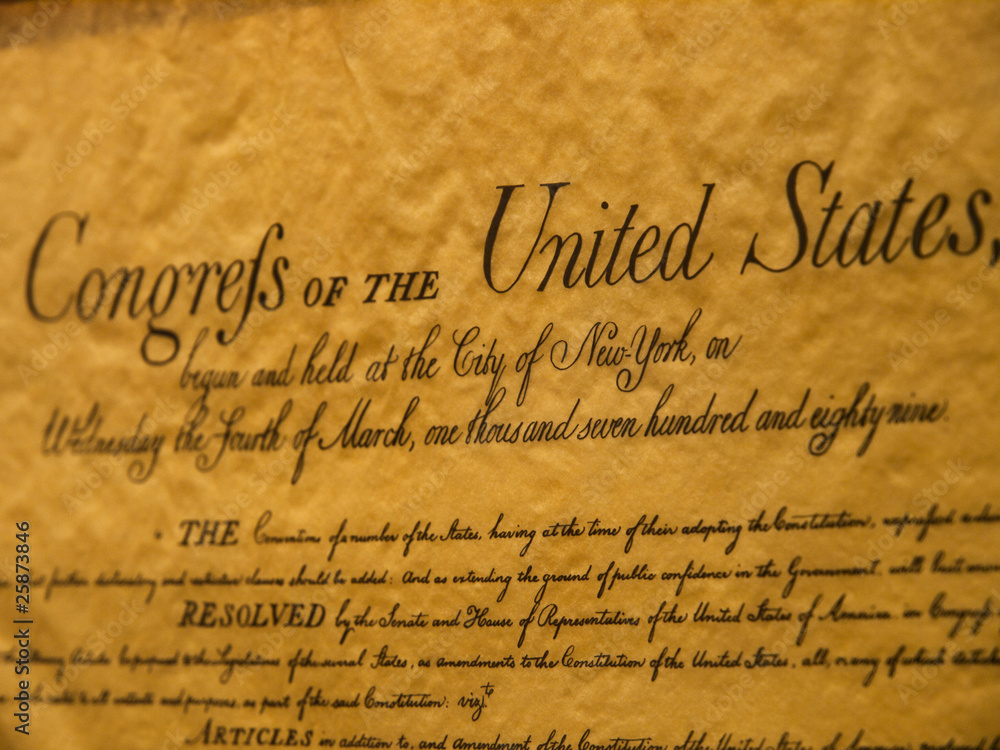 Congreſs OF THE United States,
begun and held at the City of New-York, on
Wednesday the Fourth of March, one thousand seven hundred and eighty nine.
THE Conventions of a number of the States, having at the time of their adopting the Constitution, expressed
further declaratory and restrictive clauses should be added: And as extending the ground of public confidence in the Government, will best
RESOLVED by the Senate and House of Representatives of the United States of America, in Congress
to the Legislatures of the several States, as amendments to the Constitution of the United States, all, or any of which
to all intents and purposes, as part of the said Constitution; vizt.
ARTICLES in addition to, and Amendment of the Constitution of the United States
Adobe Stock | #25873846